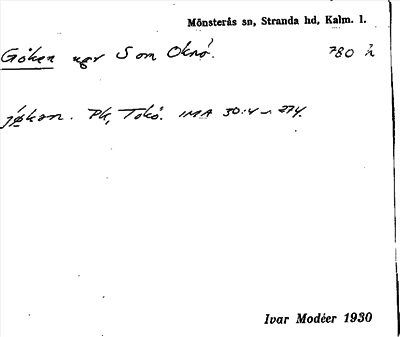 Mönsterås sn, Stranda hd, Kalm. l.
Göken ugr S om Oknö. 780 h
jøkan. Pk, Tokö. IMA 30:4 s. 274.
Ivar Modéer 1930